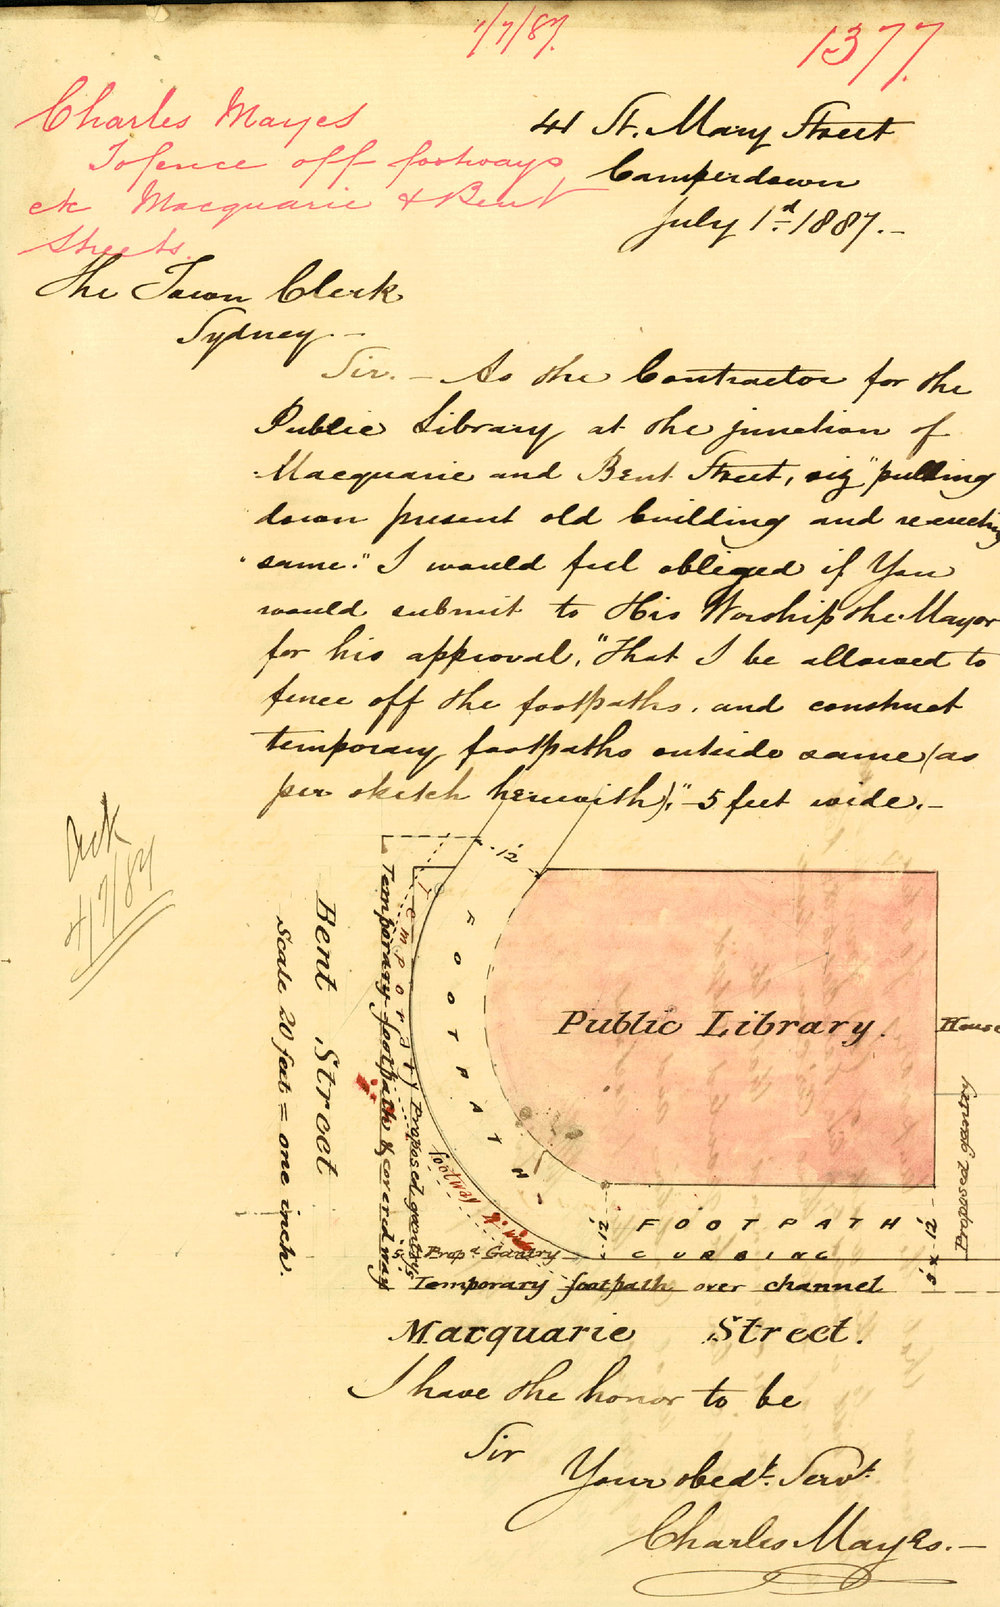 1/7/87.
1377.
Charles Mayes
To fence off footways
etc Macquarie & Bent
Streets.
41 St. Mary Street
Camperdown
July 1st. 1887.—
The Town Clerk
Sydney—
Sir.— As the Contractor for the
Public Library at the junction of
Macquarie and Bent Street, viz "pulling
down present old building and re-erecting
"same." I would feel obliged if You
would submit to His Worship the Mayor
for his approval, "That I be allowed to
fence off the footpaths, and construct
temporary footpaths outside same (as
per sketch herewith)," 5 feet wide.—
Ack
4/7/87
12'
Temporary footpath & covered way
Temporary
footway &
Proposed gantry
FOOTPATH
Bent Street
Scale 20 feet = one inch.
Public Library.
House
Proposed gantry
12'
FOOTPATH
12'
CURBING
Prop d. Gantry
5'
Temporary footpath over channel
Macquarie Street.
I have the honor to be
Sir
Your obedt. Servt.
Charles Mayes.—